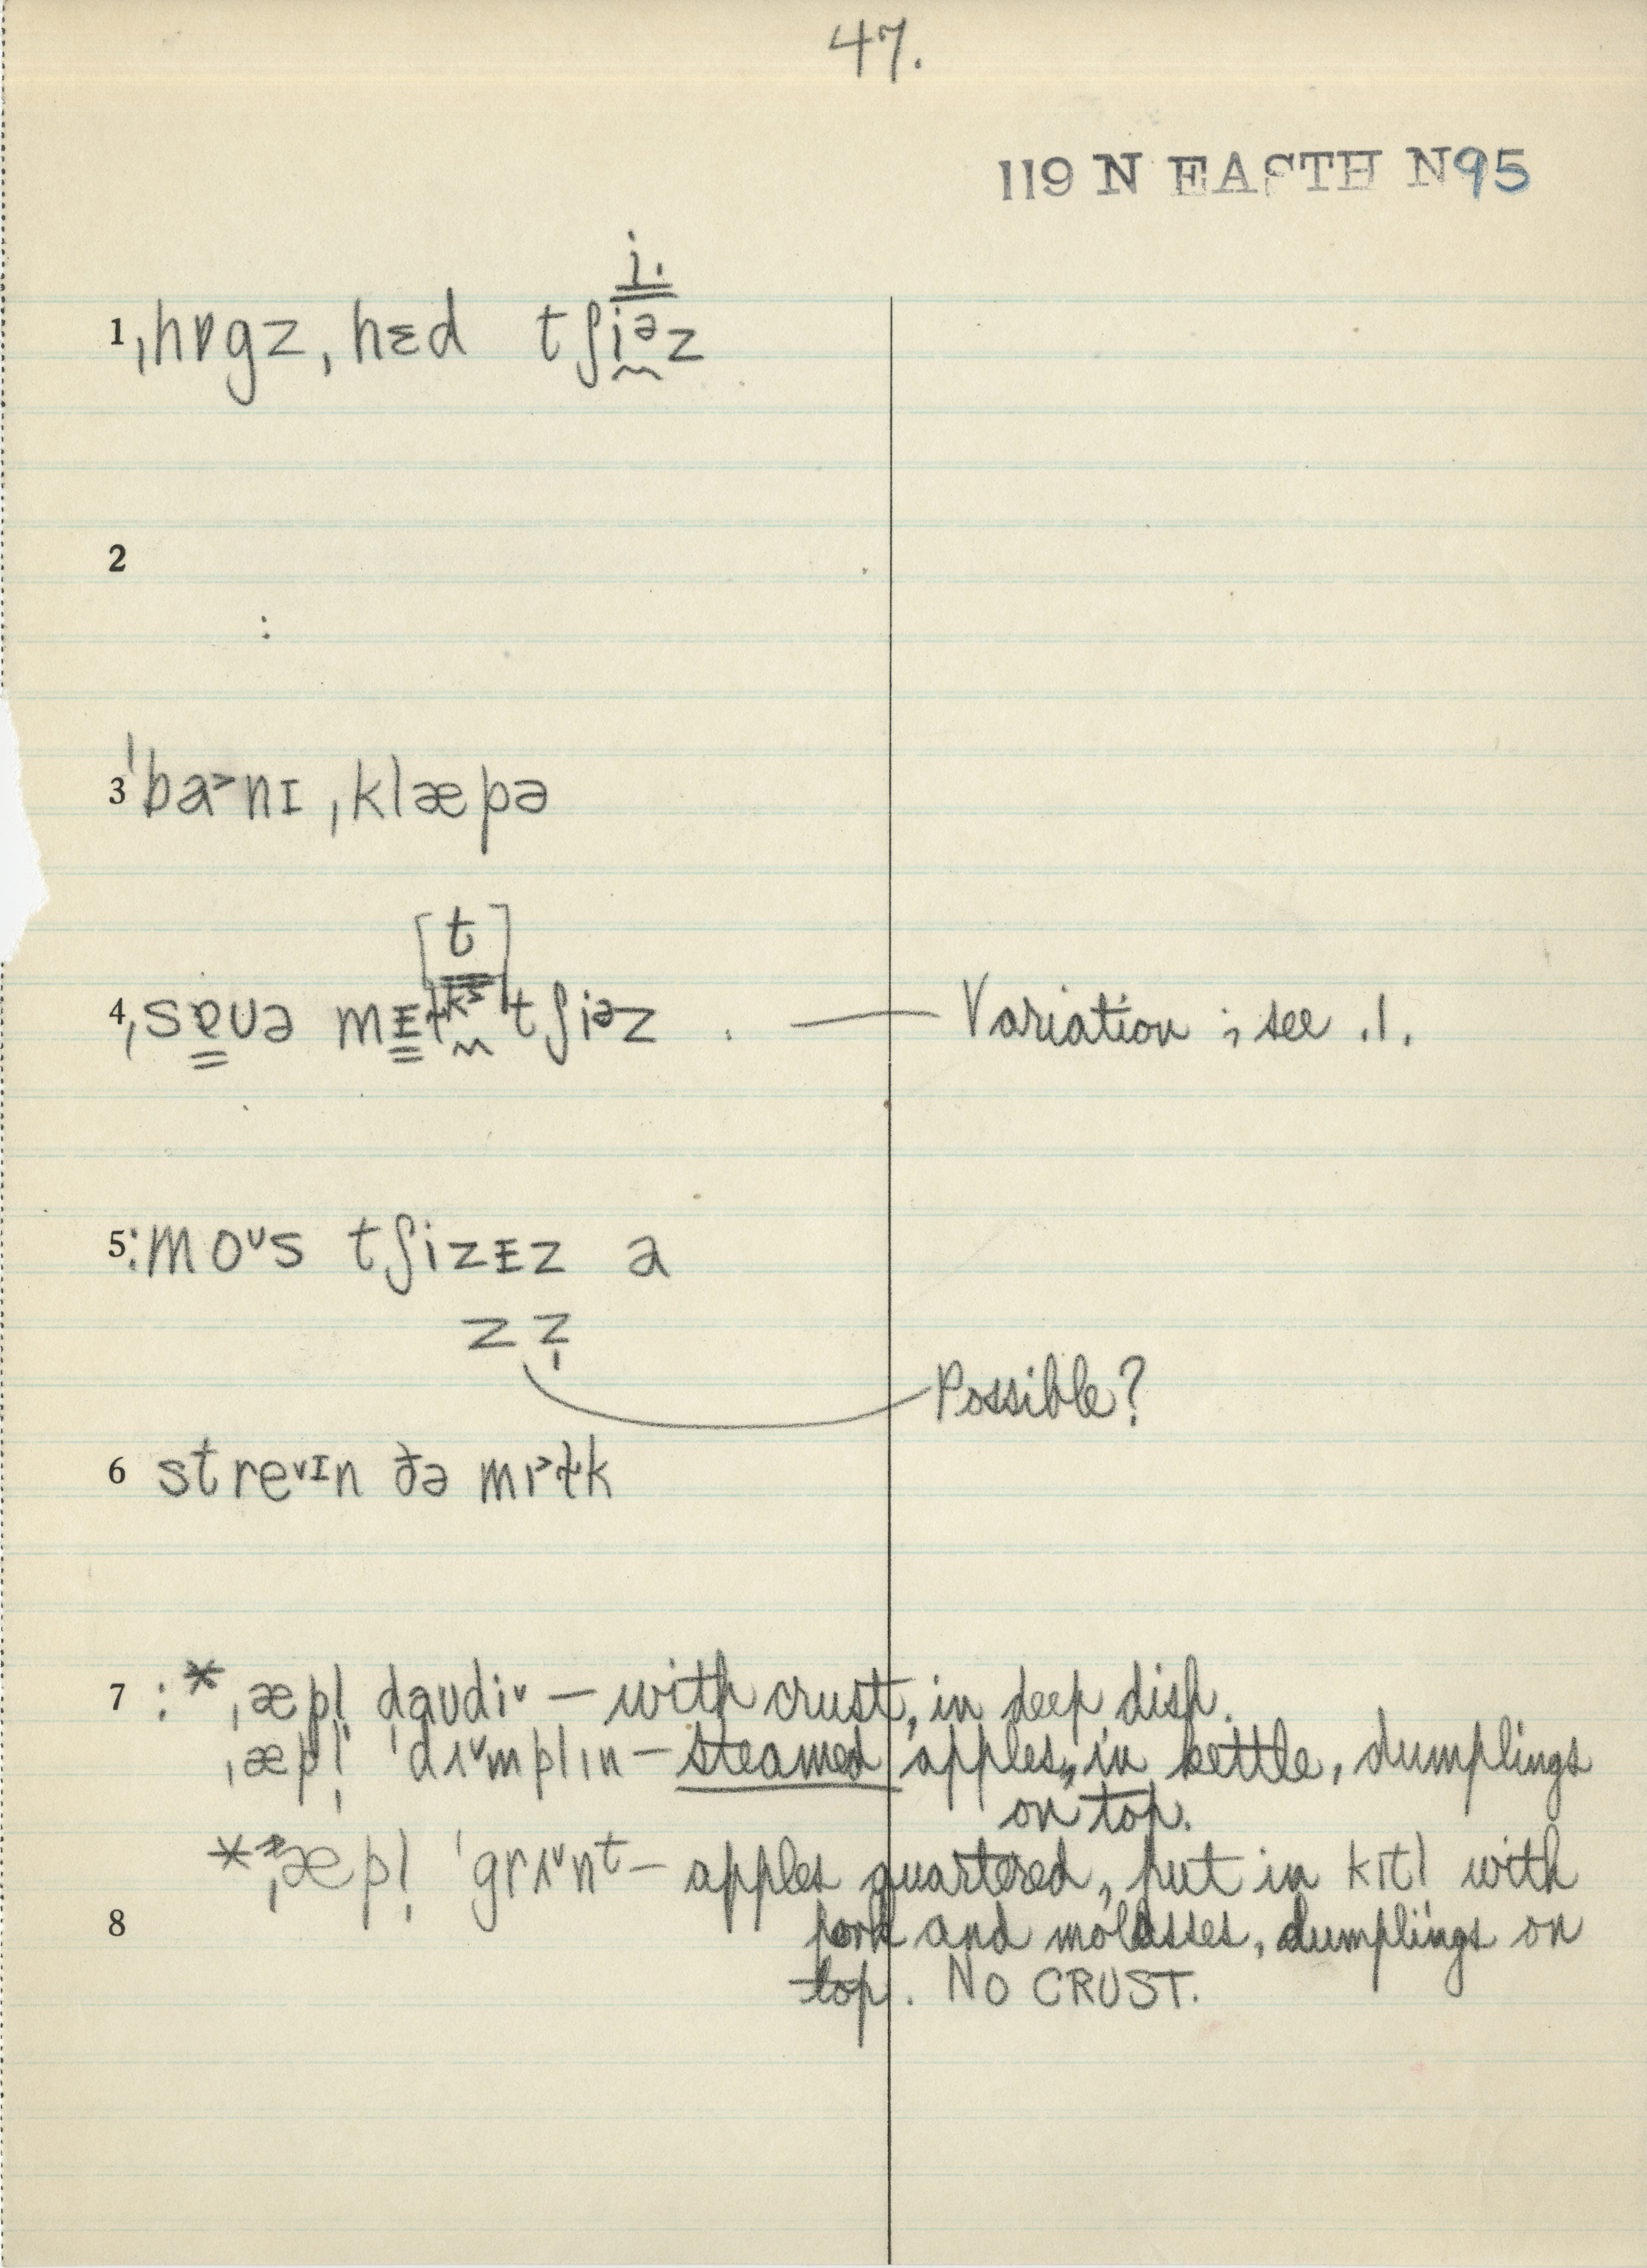 47.
119 N EASTH N95
i.
1 ˌhɒgz ˌhɛd tʃiᵊz
2
:
3 ˈba˃nɪ ˌklæpə
[t]
4 ˌsɐʊə mɛɫkˢ tʃiᵊz . — Variation ; see .1.
5 : moᵛs tʃizɛz a
z z̩
Possible?
6 streᵛɪn ðə mɪ˃ɫk
7 : * ˌæpl̩ daʊdiᵛ — with crust, in deep dish.
ˌæpl̩ ˈdʌᵛmplɪn — steamed apples, in kettle, dumplings
on top.
* ˌæpl̩ ˈgrʌᵛnᵗ — apples quartered, put in kɪtl with
8 pork and molasses, dumplings on
top. NO CRUST.